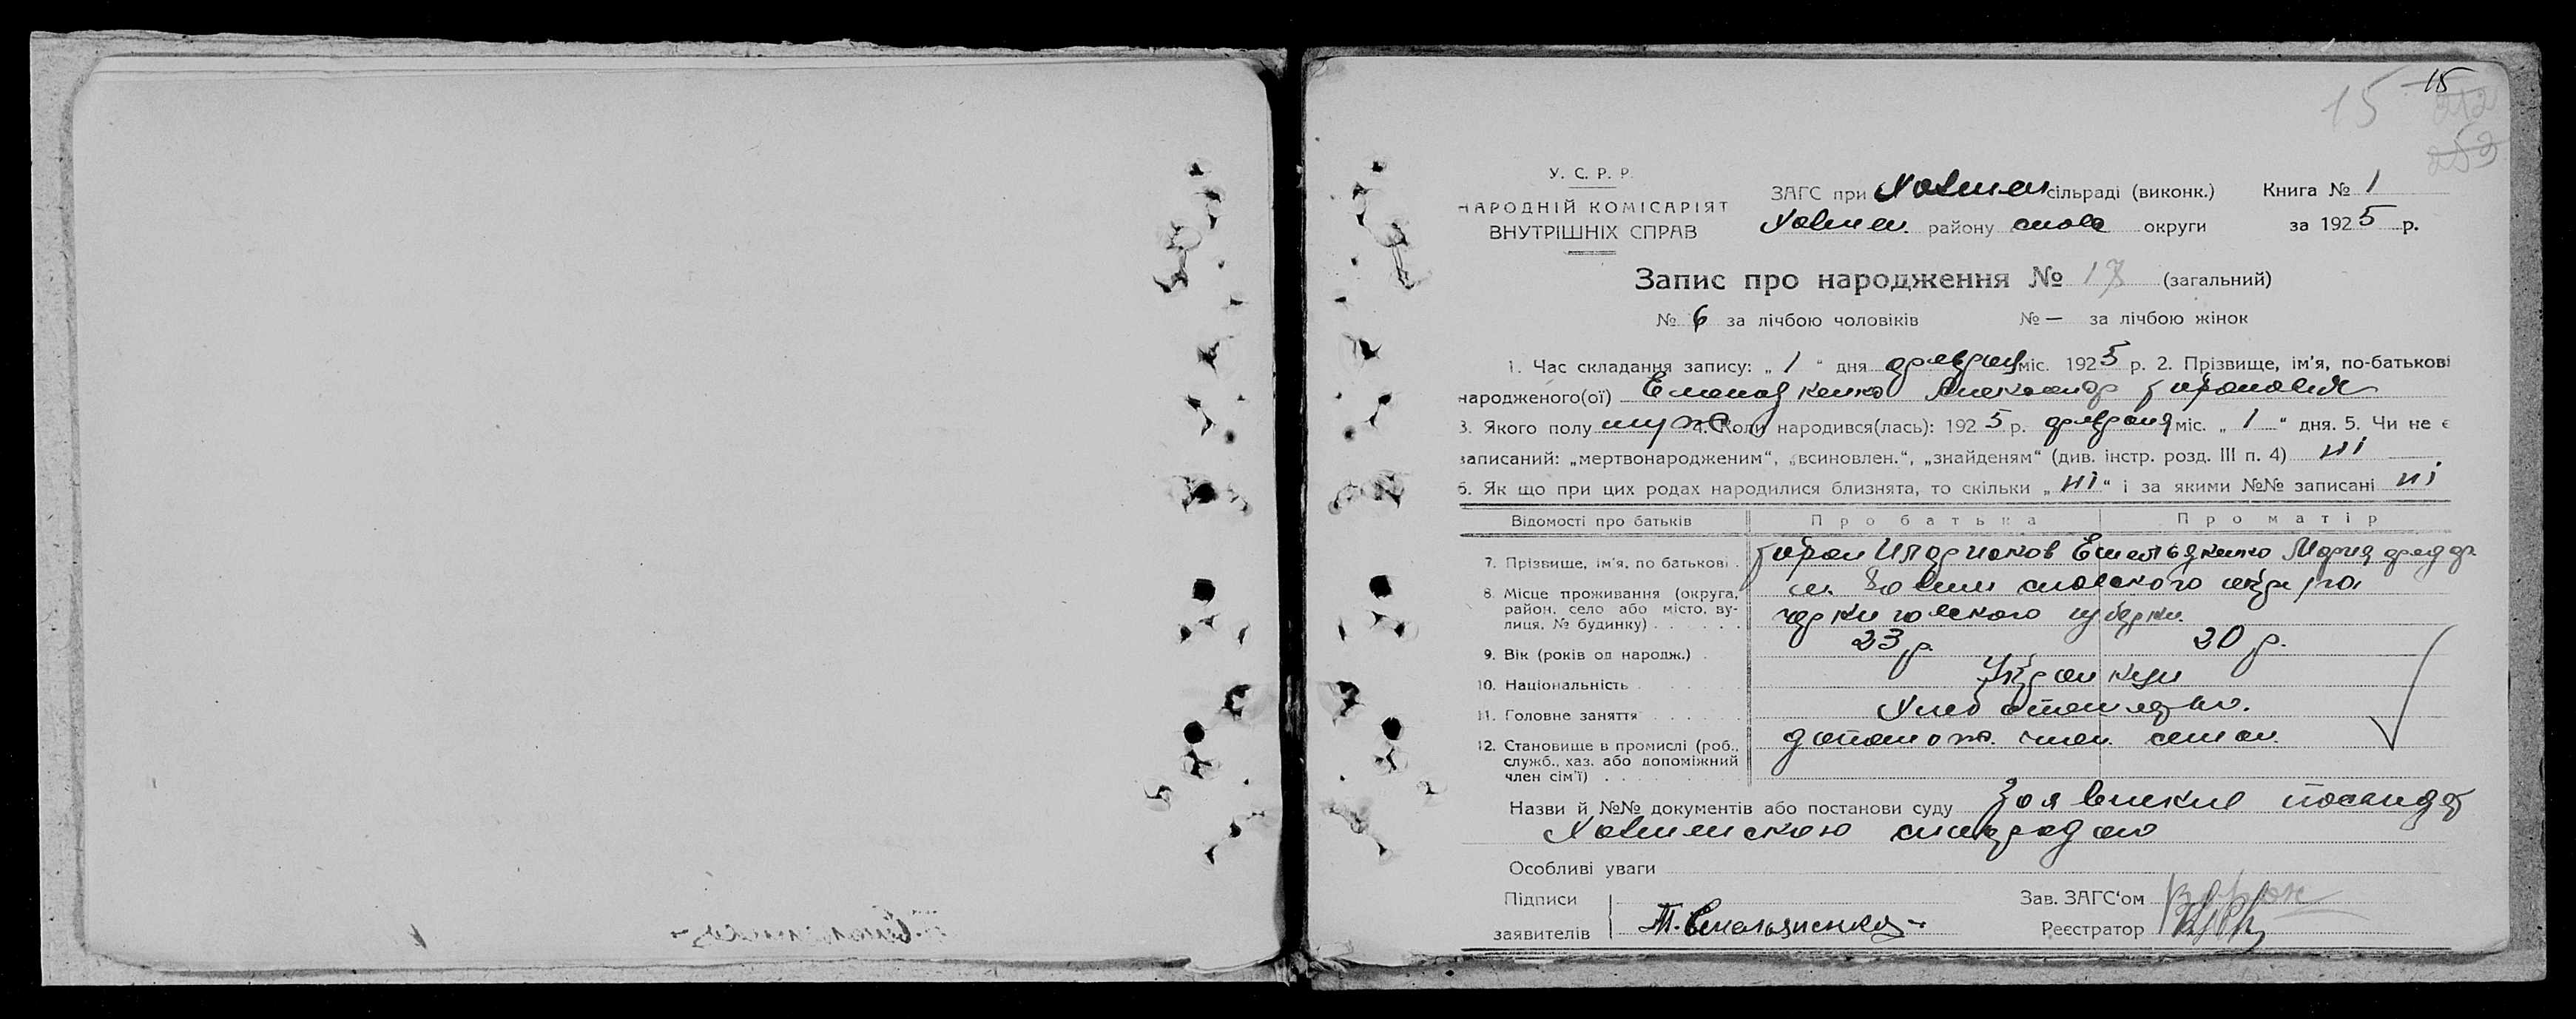 15
15
212
252
У. С. Р. Р.
НАРОДНІЙ КОМІСАРІЯТ
ВНУТРІШНІХ СПРАВ
ЗАГС при Холмен сільраді (виконк.) Книга № 1
Холмен. району снов округи за 1925 р.
Запис про народження № 17 (загальний)
№ 6 за лічбою чоловіків № — за лічбою жінок
1. Час складання запису: „ 1 “ дня февраля міс. 1925 р. 2. Прізвище, ім'я, по-батькові
народженого(ої) Александр
3. Якого полу муж 4. Коли народився(лась): 1925 р. февраля міс. „ 1 “ дня. 5. Чи не є
записаний: „мертвонародженим“, „всиновлен.“, „знайденям“ (див. інстр. розд. III п. 4) ні
6. Як що при цих родах народилися близнята, то скільки „ ні “ і за якими №№ записані ні
Відомості про батьків Про батька Про матір
7. Прізвище, ім'я, по батькові . Емельяненко Мария
8. Місце проживання (округа, район, село або місто, вулиця, № будинку) . . . . . сновского
черниговского губерни.
9. Вік (років од народж.) . 23 р. 20 р.
10. Національність . . . . . . Украинци
11. Головне заняття . . . . . . Хлебопашество.
12. Становище в промислі (роб., служб., хаз. або допоміжний член сім'ї) . . . . . . допомож. член семьи.
Назви й №№ документів або постанови суду
Особливі уваги
Підписи
заявителів Емельяненко
Зав. ЗАГС'ом
Реєстратор